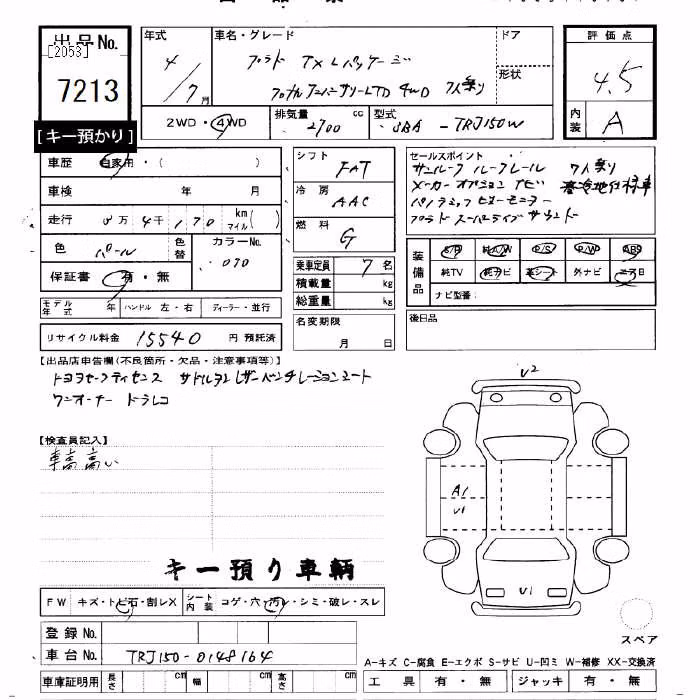 出品No.
[2053]
7213
[キー預かり]
年式
4/7月
車名・グレード
プラド TX Lパッケージ
70th アニバーサリーLTD 4WD 7人乗り
ドア
形状
評価点
4.5
内装 A
2WD・4WD
排気量 2700 cc
型式 3BA-TRJ150W
車歴 自家用・( )
車検 年 月
走行 万 4千 170 km マイル ( )
色 パール 色替
カラーNo. 070
保証書 有・無
モデル年式 年 ハンドル 左・右 ディーラー・並行
リサイクル料金 15540 円 預託済
シフト FAT
冷房 AAC
燃料 G
乗車定員 7名
積載量 kg
総重量 kg
名変期限
月 日
セールスポイント
サンルーフ ルーフレール 7人乗り
メーカーオプションナビ 寒冷地仕様車
パノラミックビューモニター
プラド スーパーライブサウンド
装備品
S/R 純A/W P/S P/W ABS
純TV 純ナビ 革シート 外ナビ エアB
ナビ型番:
後日品
【出品店申告欄(不良箇所・欠品・注意事項等)】
トヨタセーフティセンス サドルタン レザーベンチレーションシート
ワンオーナー ドラレコ
【検査員記入】
車高高い
キー預り車輌
U2
A1
U1
U1
スペア
FW キズ・トビ石・割レX シート内装 コゲ・穴・汚レ・シミ・破レ・スレ
登録No.
車台No. TRJ150-0148164
車庫証明用 長さ cm 幅 cm 高さ cm
A-キズ C-腐食 E-エクボ S-サビ U-凹ミ W-補修 XX-交換済
工具 有・無 ジャッキ 有・無